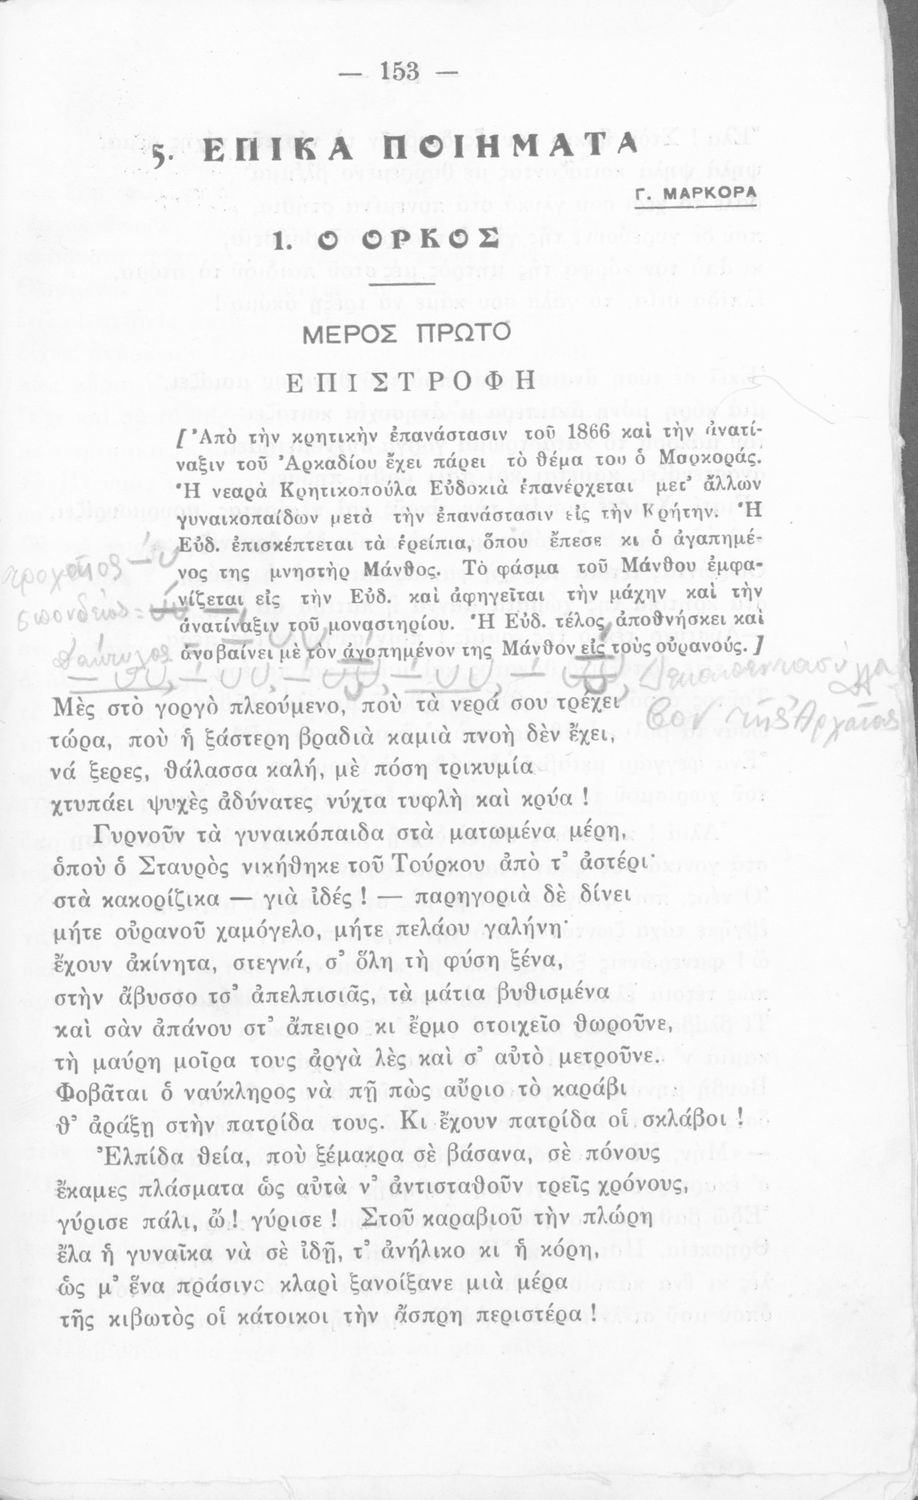 — 153 —
5. ΕΠΙΚΑ ΠΟΙΗΜΑΤΑ
Γ. ΜΑΡΚΟΡΑ
1. Ο ΟΡΚΟΣ
ΜΕΡΟΣ ΠΡΩΤΟ
ΕΠΙΣΤΡΟΦΗ
[Ἀπὸ τὴν κρητικὴν ἐπανάστασιν τοῦ 1866 καὶ τὴν ἀνατί-
ναξιν τοῦ Ἀρκαδίου ἔχει πάρει τὸ θέμα του ὁ Μαρκοράς.
Ἡ νεαρὰ Κρητικοπούλα Εὐδοκιὰ ἐπανέρχεται μετ' ἄλλων
γυναικοπαίδων μετὰ τὴν ἐπανάστασιν εἰς τὴν Κρήτην. Ἡ
Εὐδ. ἐπισκέπτεται τὰ ἐρείπια, ὅπου ἔπεσε κι ὁ ἀγαπημέ-
νος της μνηστὴρ Μάνθος. Τὸ φάσμα τοῦ Μάνθου ἐμφα-
νίζεται εἰς τὴν Εὐδ. καὶ ἀφηγεῖται τὴν μάχην καὶ τὴν
ἀνατίναξιν τοῦ μοναστηρίου. Ἡ Εὐδ. τέλος ἀποθνήσκει καὶ
ἀνοβαίνει μὲ τὸν ἀγοπημένον της Μάνθον εἰς τοὺς οὐρανούς.]
τροχαῖος — υ
σπονδεῖος =
δάκτυλος
Δεκαπεντασύλλα
βον τῆς Ἀρχαίας
Μὲς στὸ γοργὸ πλεούμενο, ποὺ τὰ νερά σου τρέχει
τώρα, ποὺ ἡ ξάστερη βραδιὰ καμιὰ πνοὴ δὲν ἔχει,
νά ξερες, θάλασσα καλή, μὲ πόση τρικυμία
χτυπάει ψυχὲς ἀδύνατες νύχτα τυφλὴ καὶ κρύα !
Γυρνοῦν τὰ γυναικόπαιδα στὰ ματωμένα μέρη,
ὁποὺ ὁ Σταυρὸς νικήθηκε τοῦ Τούρκου ἀπὸ τ' ἀστέρι·
στὰ κακορίζικα — γιὰ ἰδές ! — παρηγοριὰ δὲ δίνει
μήτε οὐρανοῦ χαμόγελο, μήτε πελάου γαλήνη·
ἔχουν ἀκίνητα, στεγνά, σ' ὅλη τὴ φύση ξένα,
στὴν ἄβυσσο τσ' ἀπελπισιᾶς, τὰ μάτια βυθισμένα
καὶ σὰν ἀπάνου στ' ἄπειρο κι ἔρμο στοιχεῖο θωροῦνε,
τὴ μαύρη μοῖρα τους ἀργὰ λὲς καὶ σ' αὐτὸ μετροῦνε.
Φοβᾶται ὁ ναύκληρος νὰ πῇ πὼς αὔριο τὸ καράβι
θ' ἀράξῃ στὴν πατρίδα τους. Κι ἔχουν πατρίδα οἱ σκλάβοι !
Ἐλπίδα θεία, ποὺ ξέμακρα σὲ βάσανα, σὲ πόνους
ἔκαμες πλάσματα ὡς αὐτὰ ν' ἀντισταθοῦν τρεῖς χρόνους,
γύρισε πάλι, ὤ ! γύρισε ! Στοῦ καραβιοῦ τὴν πλώρη
ἔλα ἡ γυναῖκα νὰ σὲ ἰδῇ, τ' ἀνήλικο κι ἡ κόρη,
ὡς μ' ἕνα πράσινο κλαρὶ ξανοίξανε μιὰ μέρα
τῆς κιβωτὸς οἱ κάτοικοι τὴν ἄσπρη περιστέρα !